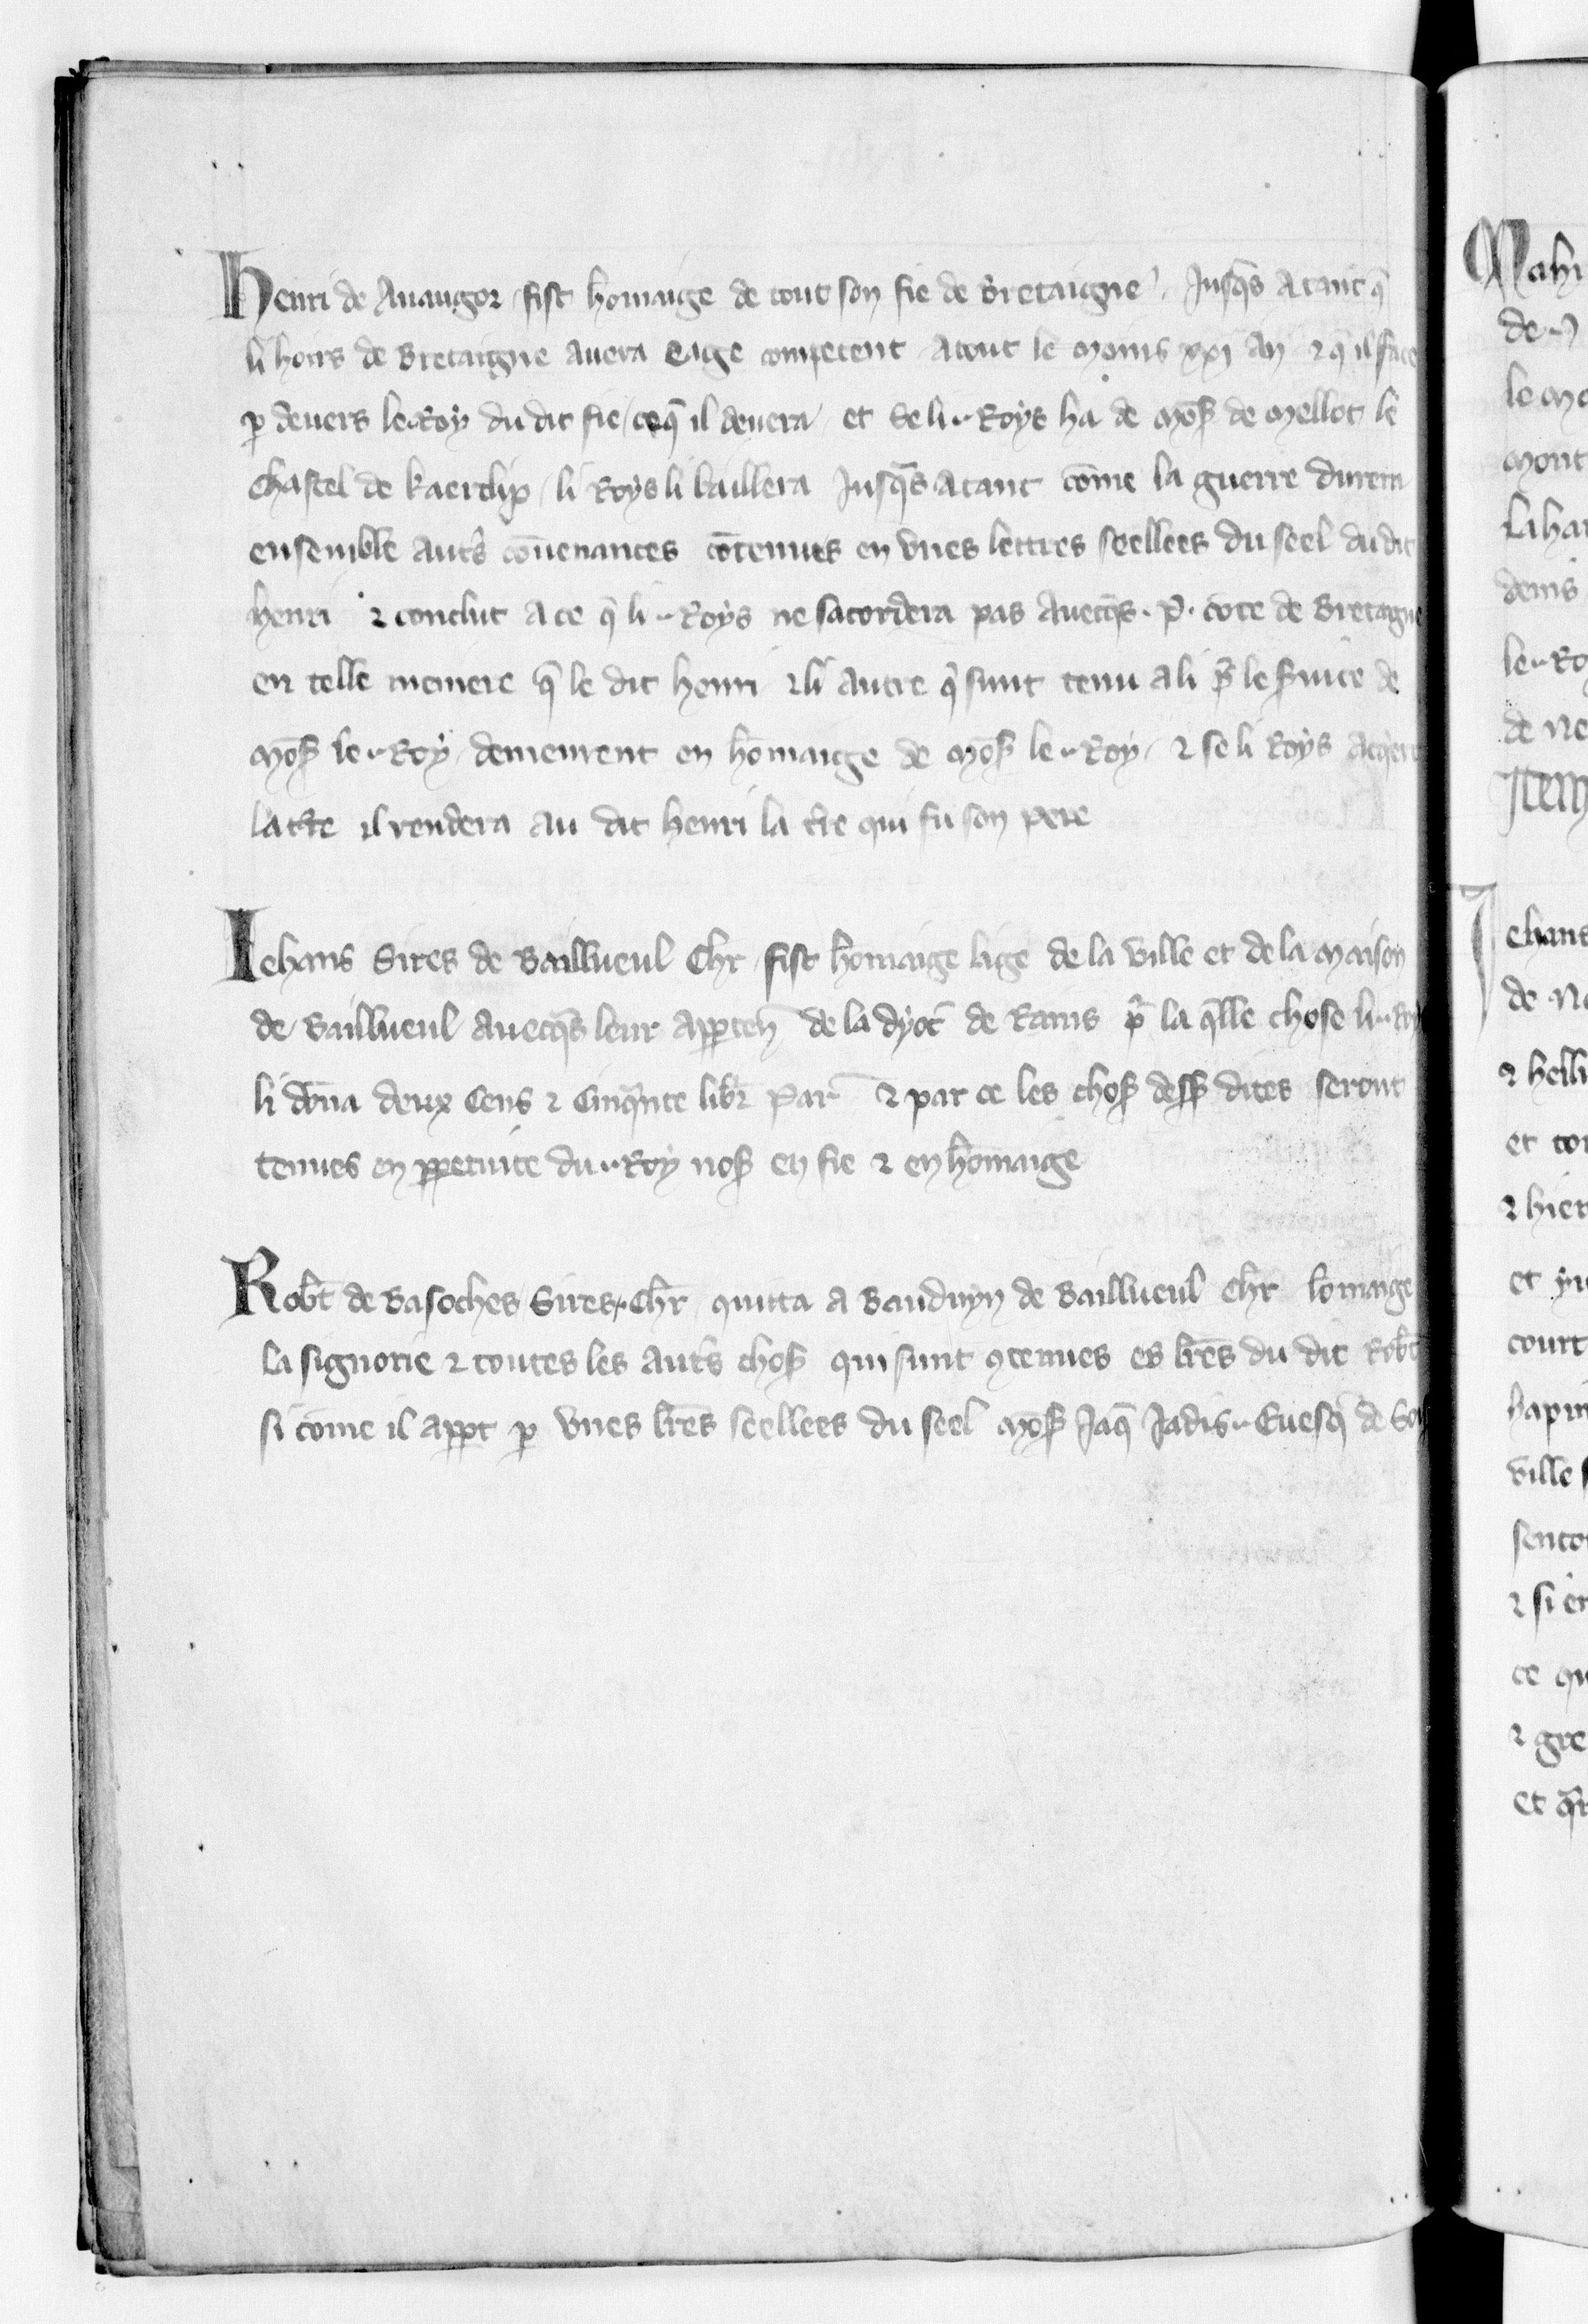 Henri de Auaugor fist homaige de tout son fie de Bretaigne . Jusqs̄ atant q̄
li hoirs de Bretaigne auera eage competent atout le moins xxj an ⁊ q̄ il face
ꝑ deuers le Roy du dit fie ceq̄ il deuera et se li .. Roys ha de moſ̄ de Mellot le
Chastel de kaerdip li Roys li baillera Jusqs̄ atant cōme la guerre durera
ensemble autˢ cōuenances cōtenues en vnes lettres seellees du seel du dit
henri ⁊ conclut a ce q̄ li .. Roys ne sacordera pas auecqs̄ . P . cōte de Bretagne
en telle meniere q̄ le dit henri ⁊ li autre q̄ sunt tenu a li pʳ le sʳuice de
moſ̄ le .. Roy demeurent en hōmaige de moſ̄ le .. Roy ⁊ se li Roys aqiert
la tʳre il rendera au dit henri la tʳre qui fu son pere
Iehans Sires de Baillueul Chr̄ fist homaige lige de la ville et de la maison
de Baillueul auecqs̄ leur apꝑten̄ de la dyoc̄ de Rains pʳ la q̄lle chose li .. Roy
li dōna deux Cens ⁊ Cinqᵃnte libr̄ Par̄ ⁊ par ce les choſ̄ desſ̄ dites seront
tenues en ꝑpetuite du .. Roy noſ̄ en fie ⁊ en hōmaige
Robt̄ de Basoches Sires .. Chr̄ quitta a Bauduyn de Baillueul Chr̄ lomaige
la signorie ⁊ toutes les autˢ choſ̄ qui sunt ꝯtenues es lr̄es du dit Robt̄
si cōme il apꝑt ꝑ vnes lr̄es seellees du seel moſ̄ Jaq̄ Jadis .. Euesq̄ de
Mahi
de
mont
denis
le .. Ro
de Ne
Item
ehans
de
⁊
et
⁊ hier
et
court
ville
⁊ si
ce
⁊ gre
et